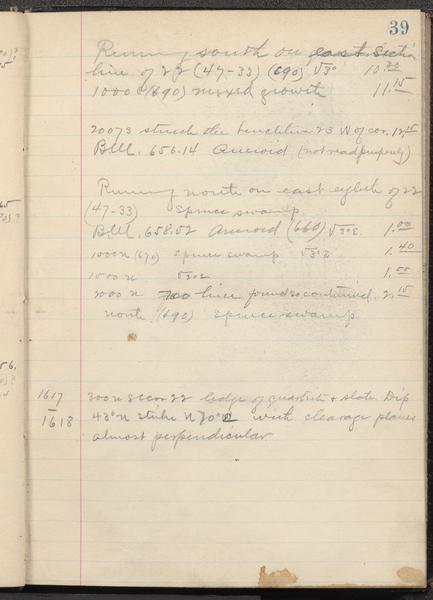 39
Running south on east Section
line of 22 (47-33) (690) V3° 10.30
1000 (690) mixed growth 11.15
20073 struck the benchline 23 W of cor. 12.15
B.M. 656.14 Aneroid (not read properly)
Running north on east eighth of 22
(47-33) Spruce swamp.
B.M. 658.52 Aneroid (660) V3°E. 1.00
1000 N (670) Spruce swamp V3°E 1.40
1500 N V3°E 1.55
2000 N line found so continued. 2.15
north (690) Spruce swamp
1617
-
1618
300 N S cor 22 ledge of quartzite & slate Dip
43° N strike N 70° E with cleavage planes
almost perpendicular